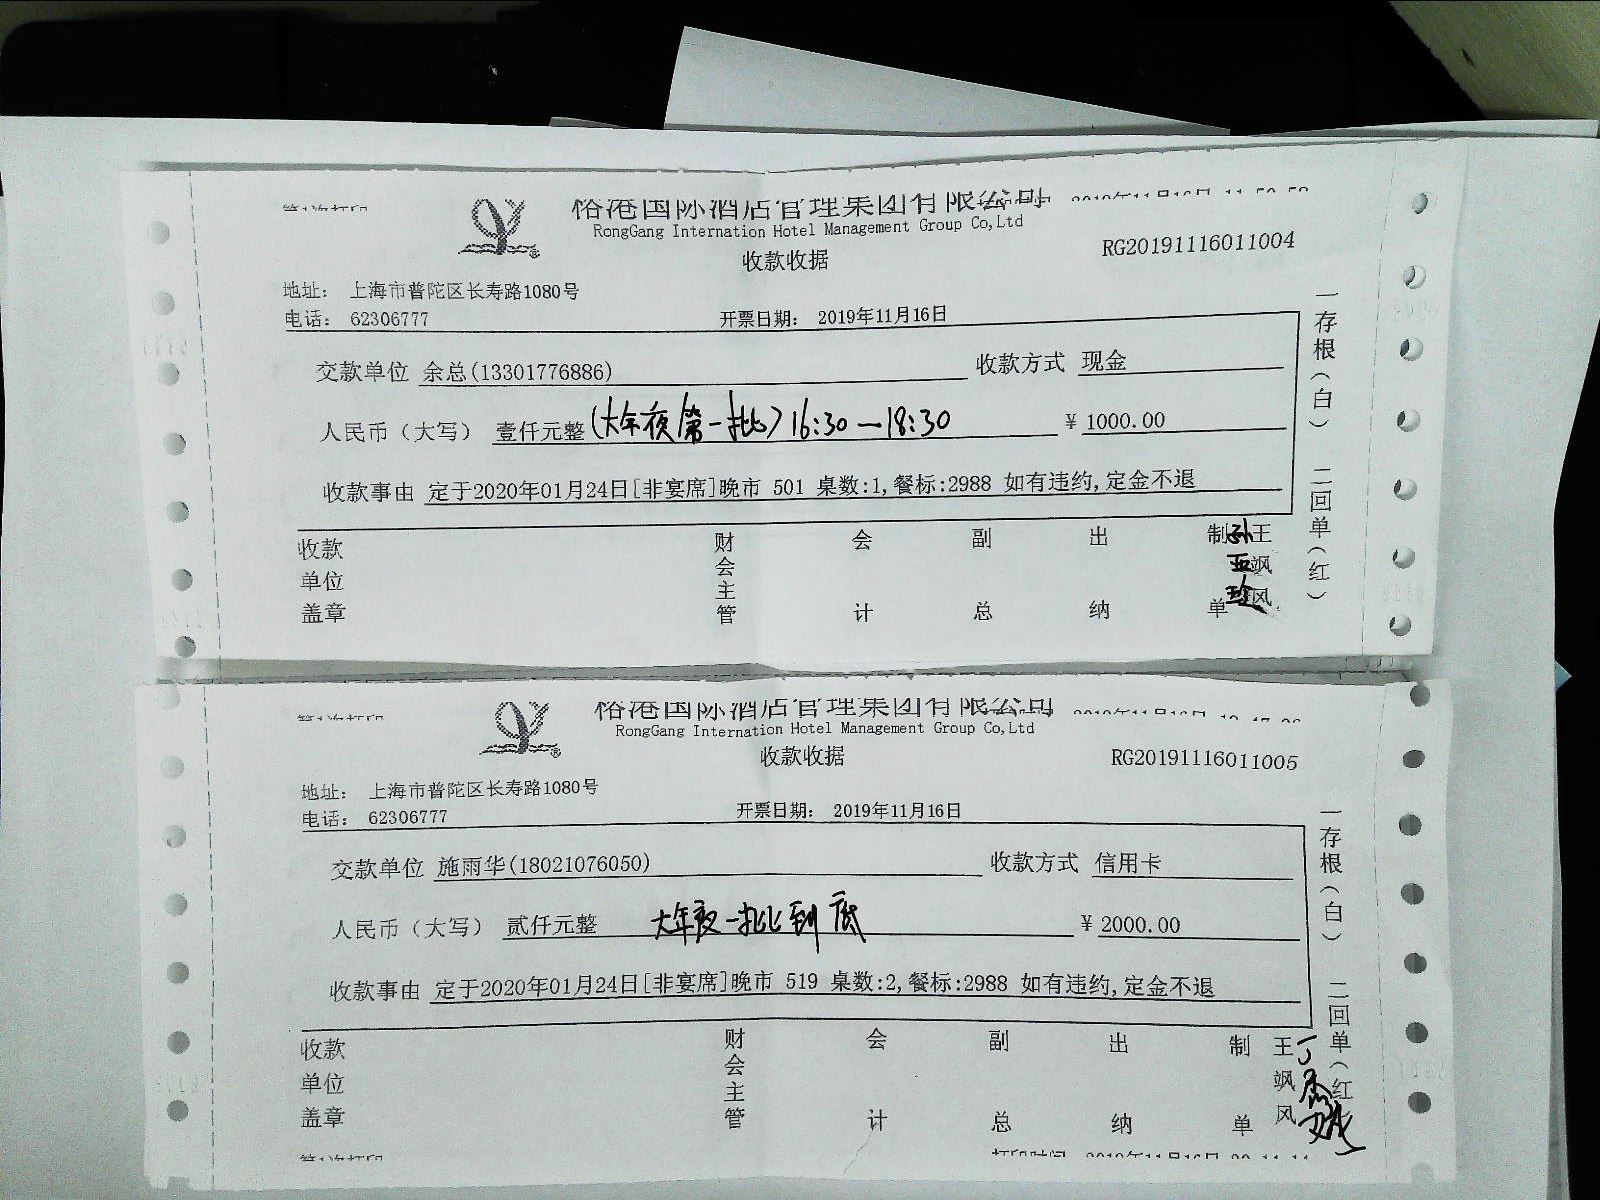 裕港国际酒店管理集团有限公司
RongGang Internation Hotel Management Group Co,Ltd
收款收据
RG20191116011004
地址： 上海市普陀区长寿路1080号
电话： 62306777 开票日期： 2019年11月16日
交款单位 余总(13301776886) 收款方式 现金
人民币（大写） 壹仟元整(大年夜第一批)16:30—18:30 ¥ 1000.00
收款事由 定于2020年01月24日[非宴席]晚市 501 桌数:1,餐标:2988 如有违约,定金不退
收款单位盖章 财会主管 会计 副总 出纳 制单 王飒风 孙亚珍
一存根（白） 二回单（红）
裕港国际酒店管理集团有限公司
RongGang Internation Hotel Management Group Co,Ltd
收款收据
RG20191116011005
地址： 上海市普陀区长寿路1080号
电话： 62306777 开票日期： 2019年11月16日
交款单位 施雨华(18021076050) 收款方式 信用卡
人民币（大写） 贰仟元整 大年夜一批到底 ¥ 2000.00
收款事由 定于2020年01月24日[非宴席]晚市 519 桌数:2,餐标:2988 如有违约,定金不退
收款单位盖章 财会主管 会计 副总 出纳 制单 王飒风
一存根（白） 二回单（红